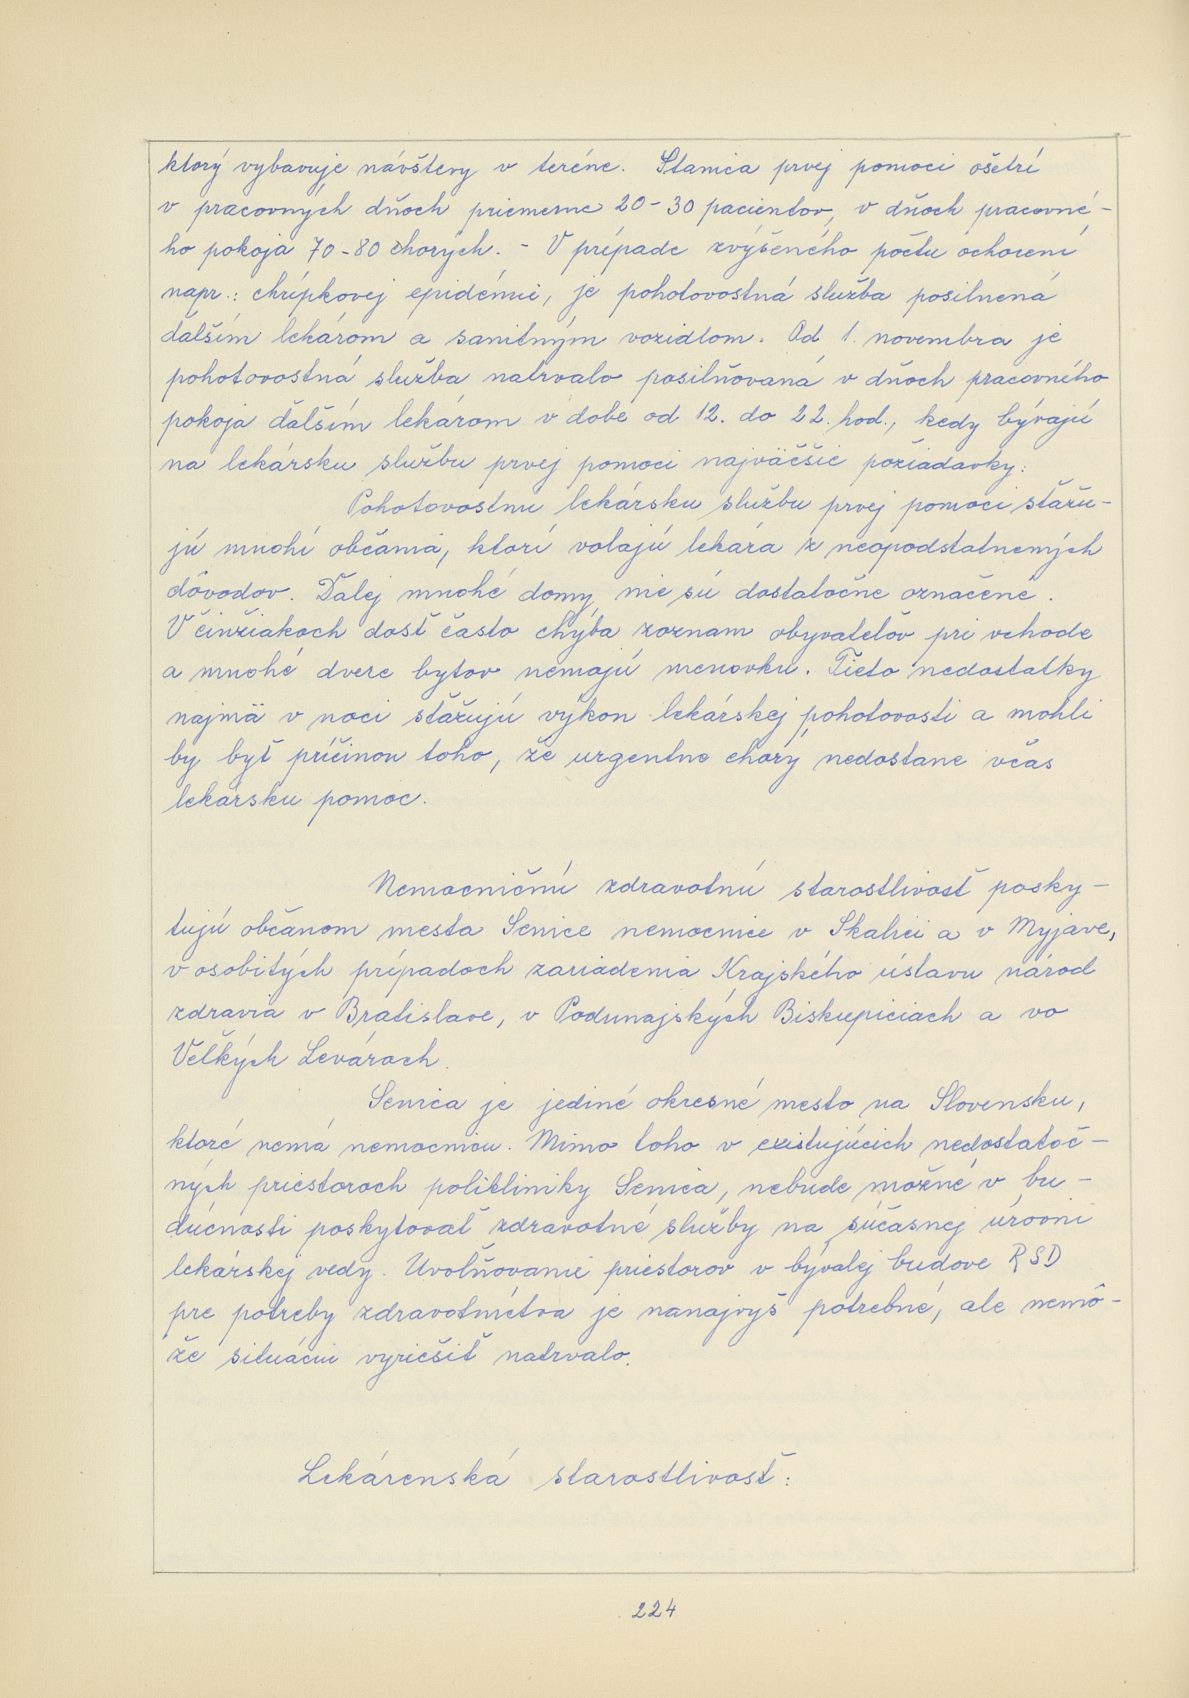 ktorý vybavuje návštevy v teréne. Stanica prvej pomoci ošetrí
v pracovných dňoch priemerne 20-30 pacientov, v dňoch pracovné-
ho pokoja 70-80 chorých. - V prípade zvýšeného počtu ochorení
napr.: chrípkovej epidémii, je pohotovostná služba posilnená
ďalším lekárom a sanitným vozidlom. Od 1. novembra je
pohotovostná služba natrvalo posilňovaná v dňoch pracovného
pokoja ďalším lekárom v dobe od 12. do 22. hod., kedy bývajú
na lekársku službu prvej pomoci najväčšie požiadavky.
Pohotovostnú lekársku službu prvej pomoci sťažu-
jú mnohí občania, ktorí volajú lekára z neopodstatnených
dôvodov. Ďalej mnohé domy nie sú dostatočne označené.
V činžiakoch dosť často chýba zoznam obyvateľov pri vchode
a mnohé dvere bytov nemajú menovku. Tieto nedostatky
najmä v noci sťažujú výkon lekárskej pohotovosti a mohli
by byť príčinou toho, že urgentne chorý nedostane včas
lekársku pomoc.
Nemocničnú zdravotnú starostlivosť posky-
tujú občanom mesta Senice nemocnice v Skalici a v Myjave,
v osobitých prípadoch zariadenia Krajského ústavu národ
zdravia v Bratislave, v Podunajských Biskupiciach a vo
Veľkých Levároch.
Senica je jediné okresné mesto na Slovensku,
ktoré nemá nemocnicu. Mimo toho v existujúcich nedostatoč-
ných priestoroch polikliniky Senica, nebude možné v bu-
dúcnosti poskytovať zdravotné služby na súčasnej úrovni
lekárskej vedy. Uvoľňovanie priestorov v bývalej budove RSD
pre potreby zdravotníctva je nanajvýš potrebné, ale nemô-
že situáciu vyriešiť natrvalo.
Lekárenská starostlivosť:
224